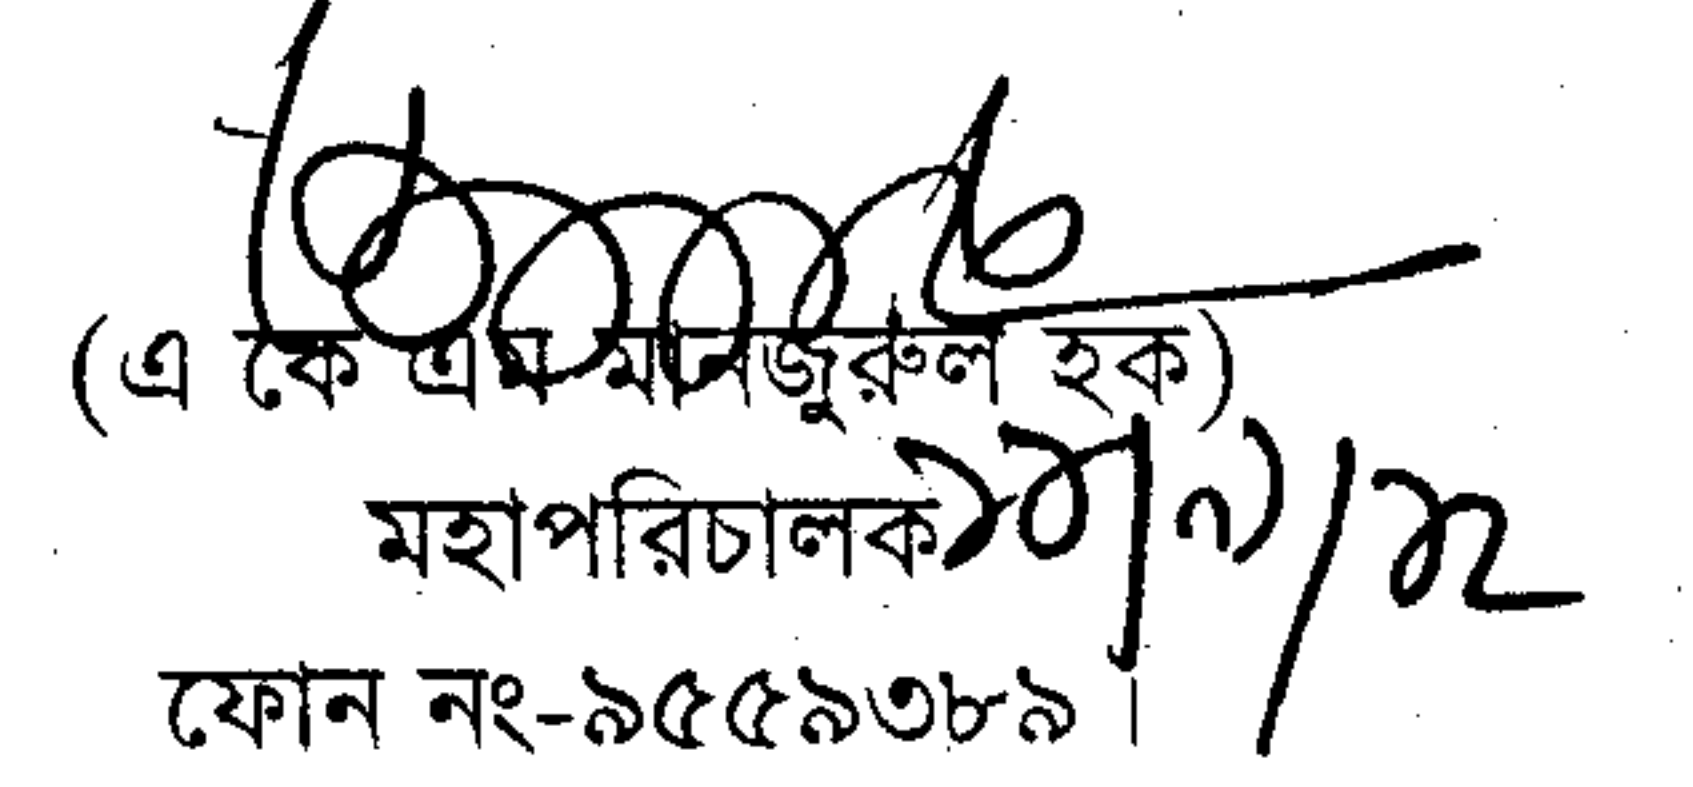 (এ কে এম মানজুরুল হক)
মহাপরিচালক
ফোন নং-৯৫৫৯৩৮৯।